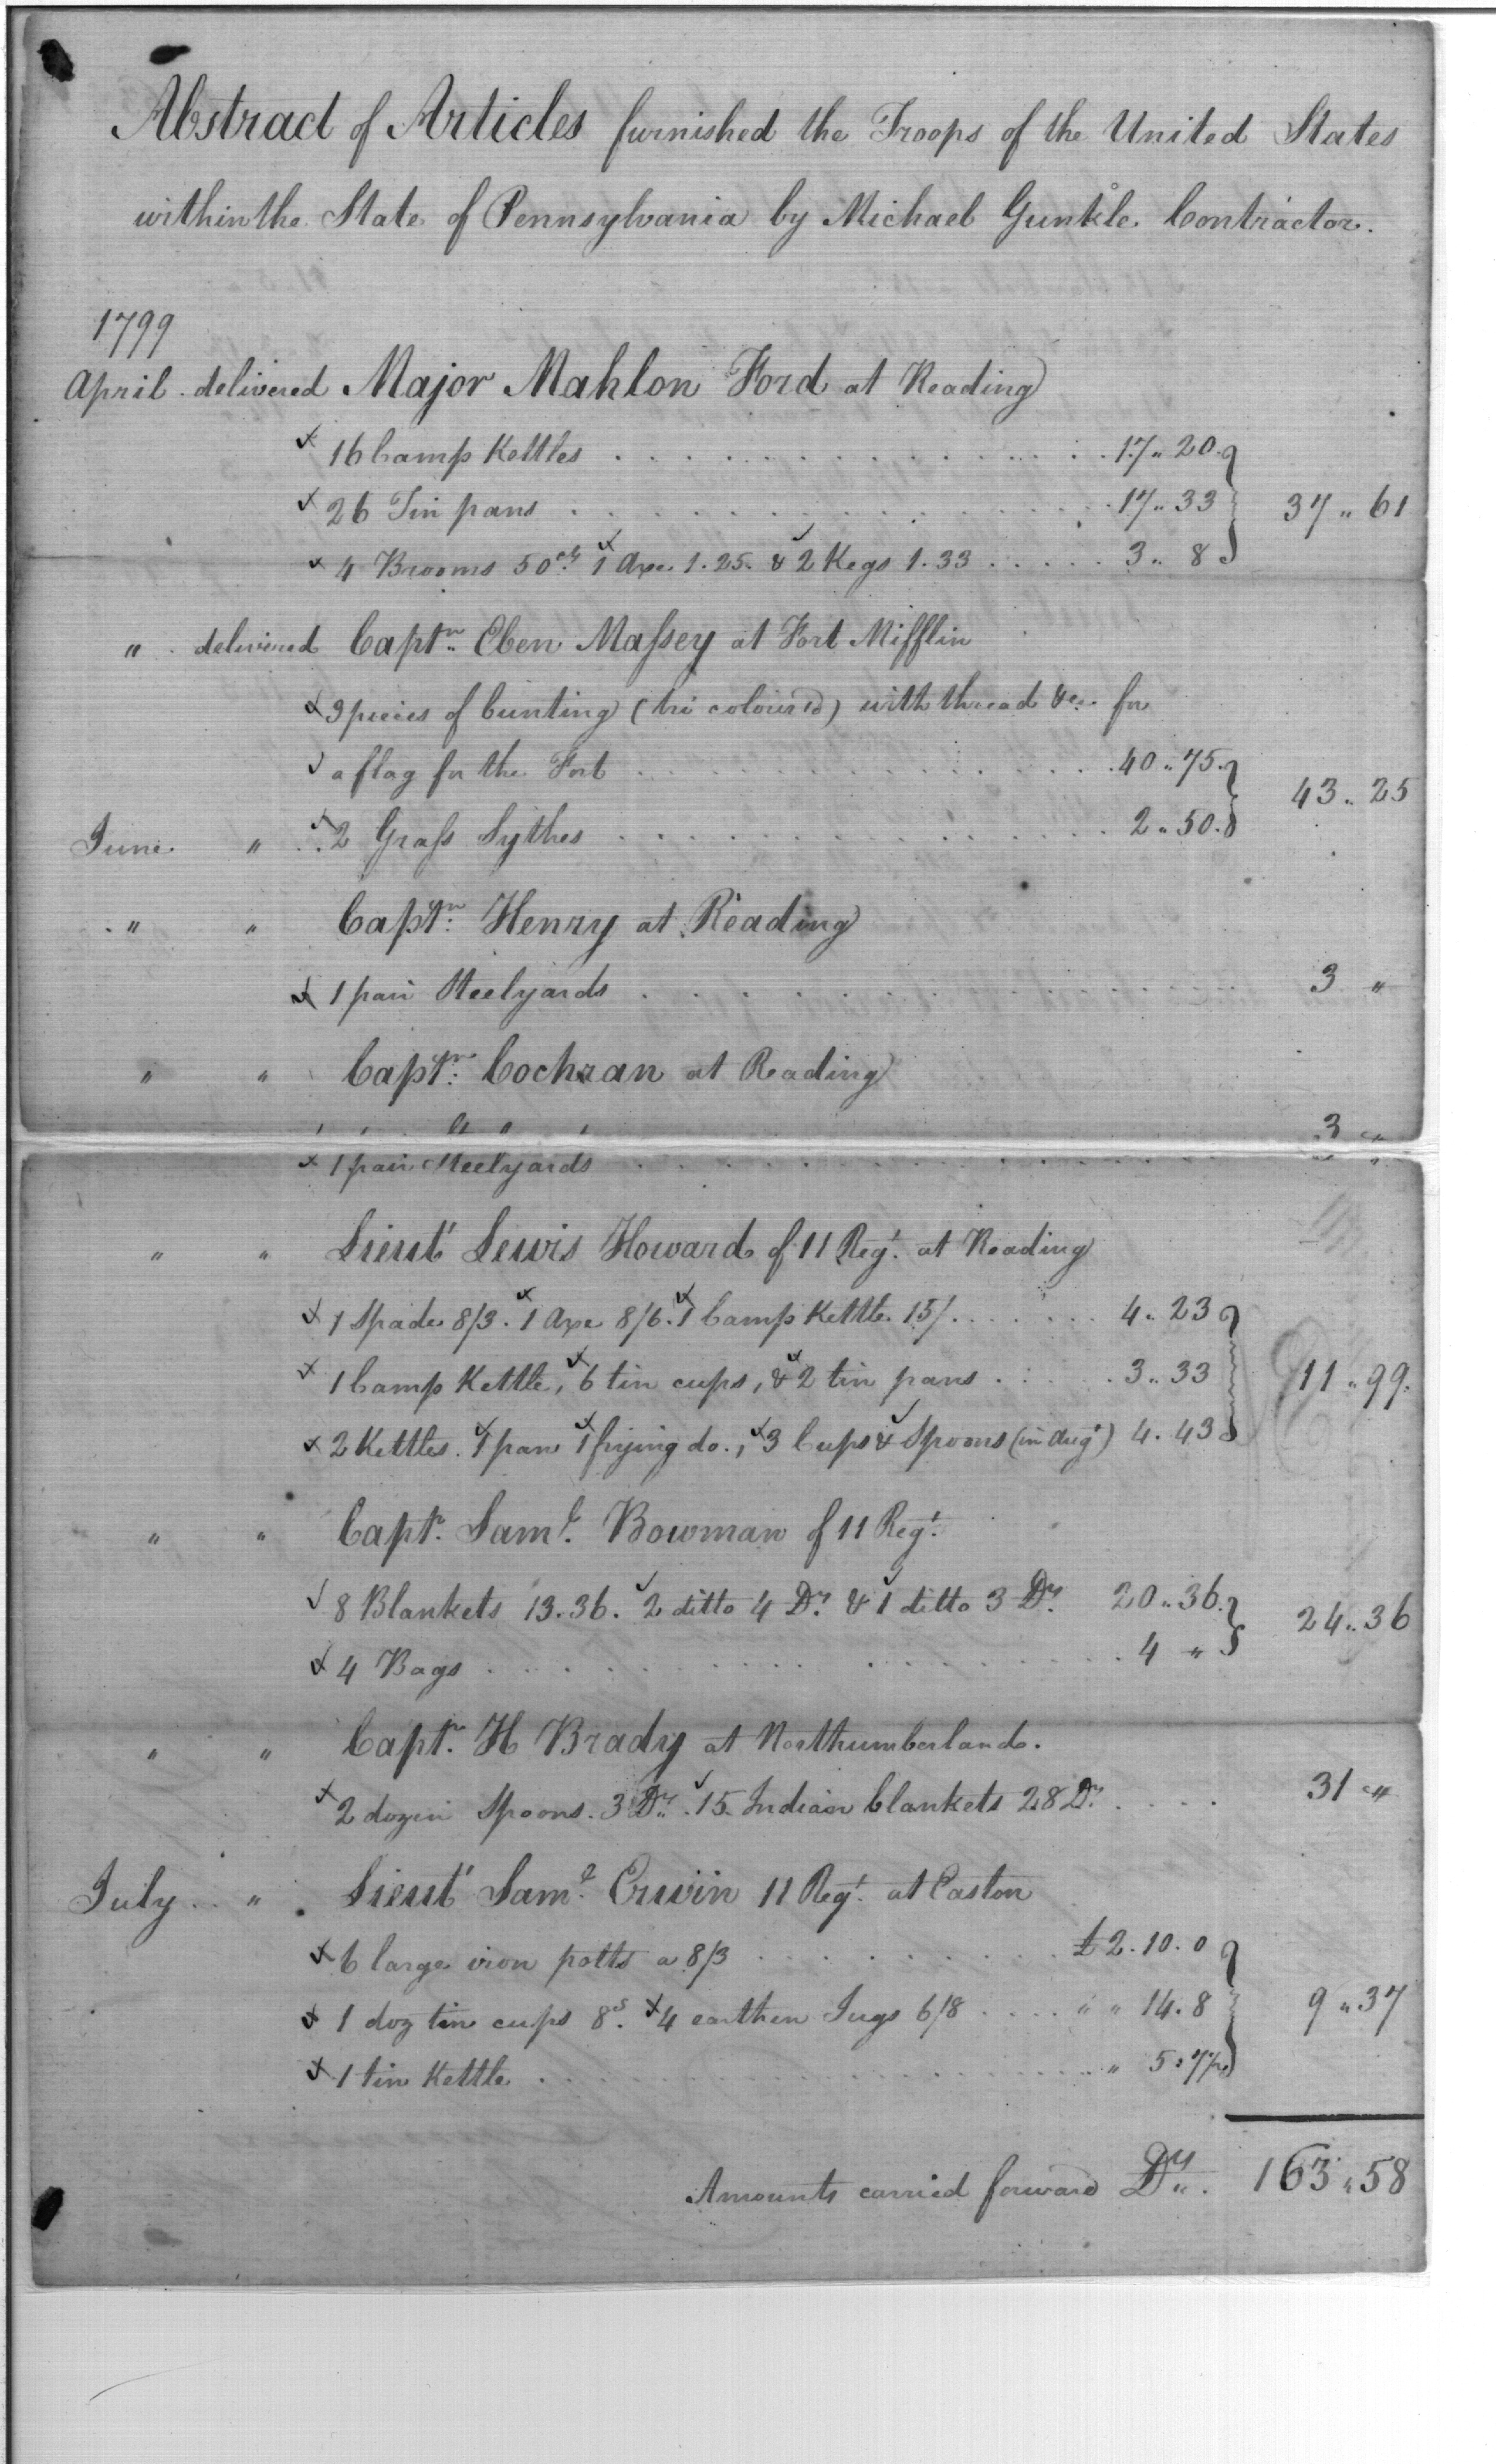 Abstract of Articles furnished the Troops of the United States
within the State of Pennsylvania by Michael Gunkle Contractor.
1799
April . delivered Major Mahlon Ford at Reading
16 Camp Kettles . . . . 17 " 20
26 Tin pans . . . . 17 " 33 37 " 61
4 Brooms 50 cts. 1 Axe 1.25. & 2 Kegs 1.33 . . . . 3 " 8
" . delivered Captn. Eben Massey at Fort Mifflin
3 pieces of bunting (tri colour'd) with thread &c. for
a flag for the Fort . . . . 40 " 75
June " 2 Grass Sythes . . . . 2 " 50 43 " 25
" " Captn. Henry at Reading
1 pair Steelyards . . . . 3 "
" " Captn. Cochran at Reading
3 "
1 pair Steelyards . . . .
" " Lieut. Lewis Howard of 11 Regt. at Reading
1 Spade 8/3. 1 Axe 8/6. 1 Camp Kettle 15/. . . . 4 " 23
1 Camp Kettle, 6 tin cups, & 2 tin pans . . . . 3 " 33 11 " 99.
2 Kettles. 1 pan 1 frying do., 3 Cups & Spoons (in Augt.) 4. 43
" " Captn. Saml. Bowman of 11 Regt.
8 Blankets 13.36. 2 ditto 4 Drs. & 1 ditto 3 Drs. 20 " 36.
4 Bags . . . . 4 " 24 " 36
" " Captn. H Brady at Northumberland.
2 dozen Spoons. 3 Drs. 15 Indian blankets 28 Drs. . . . . 31 "
July . . " Lieut. Saml. Erwin 11 Regt. at Easton
6 large iron potts a 8/3 . . . . £ 2. 10. 0
1 doz tin cups 8s. 4 earthen Jugs 6/8 . . . . " " 14. 8 9 " 37
1 tin Kettle . . . . " 5. 7½
Amounts carried forward Drs. 163 " 58